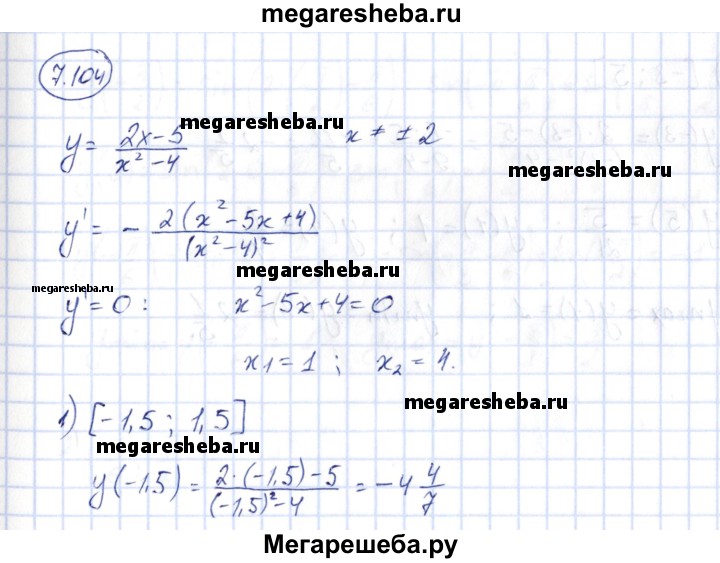 megaresheba.ru
7.104
y = (2x-5)/(x²-4) x ≠ ±2
megaresheba.ru
megaresheba.ru
y' = - 2(x²-5x+4)/(x²-4)²
megaresheba.ru
megaresheba.ru
y' = 0 : x²-5x+4=0
x₁=1 ; x₂=4.
megaresheba.ru
1) [-1,5 ; 1,5]
megaresheba.ru
y(-1,5) = (2·(-1,5)-5)/((-1,5)²-4) = -4 4/7
Мегарешеба.ру